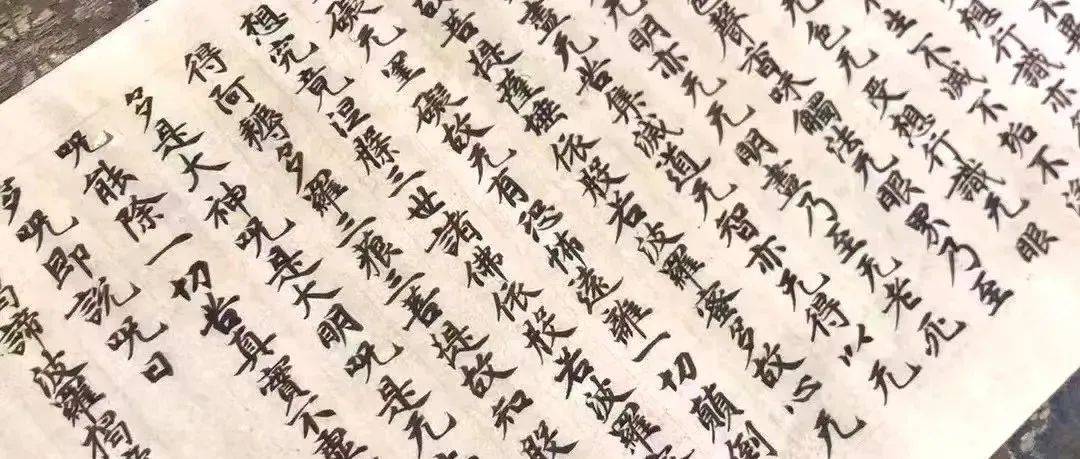 不異
想行識亦
生不滅不垢不淨
元色元受想行識元眼
色聲香味觸法元眼界乃至
元明亦元元明盡乃至元老死
盡元苦集滅道元智亦元得以元
故菩提薩埵依般若波羅蜜多故心元
礙元罣礙故元有恐怖遠離一切顛倒
想究竟涅槃三世諸佛依般若波羅
得阿耨多羅三藐三菩提故知般
多是大神咒是大明咒是元
咒能除一切苦真實不虛
多咒即說咒曰
揭諦波羅揭